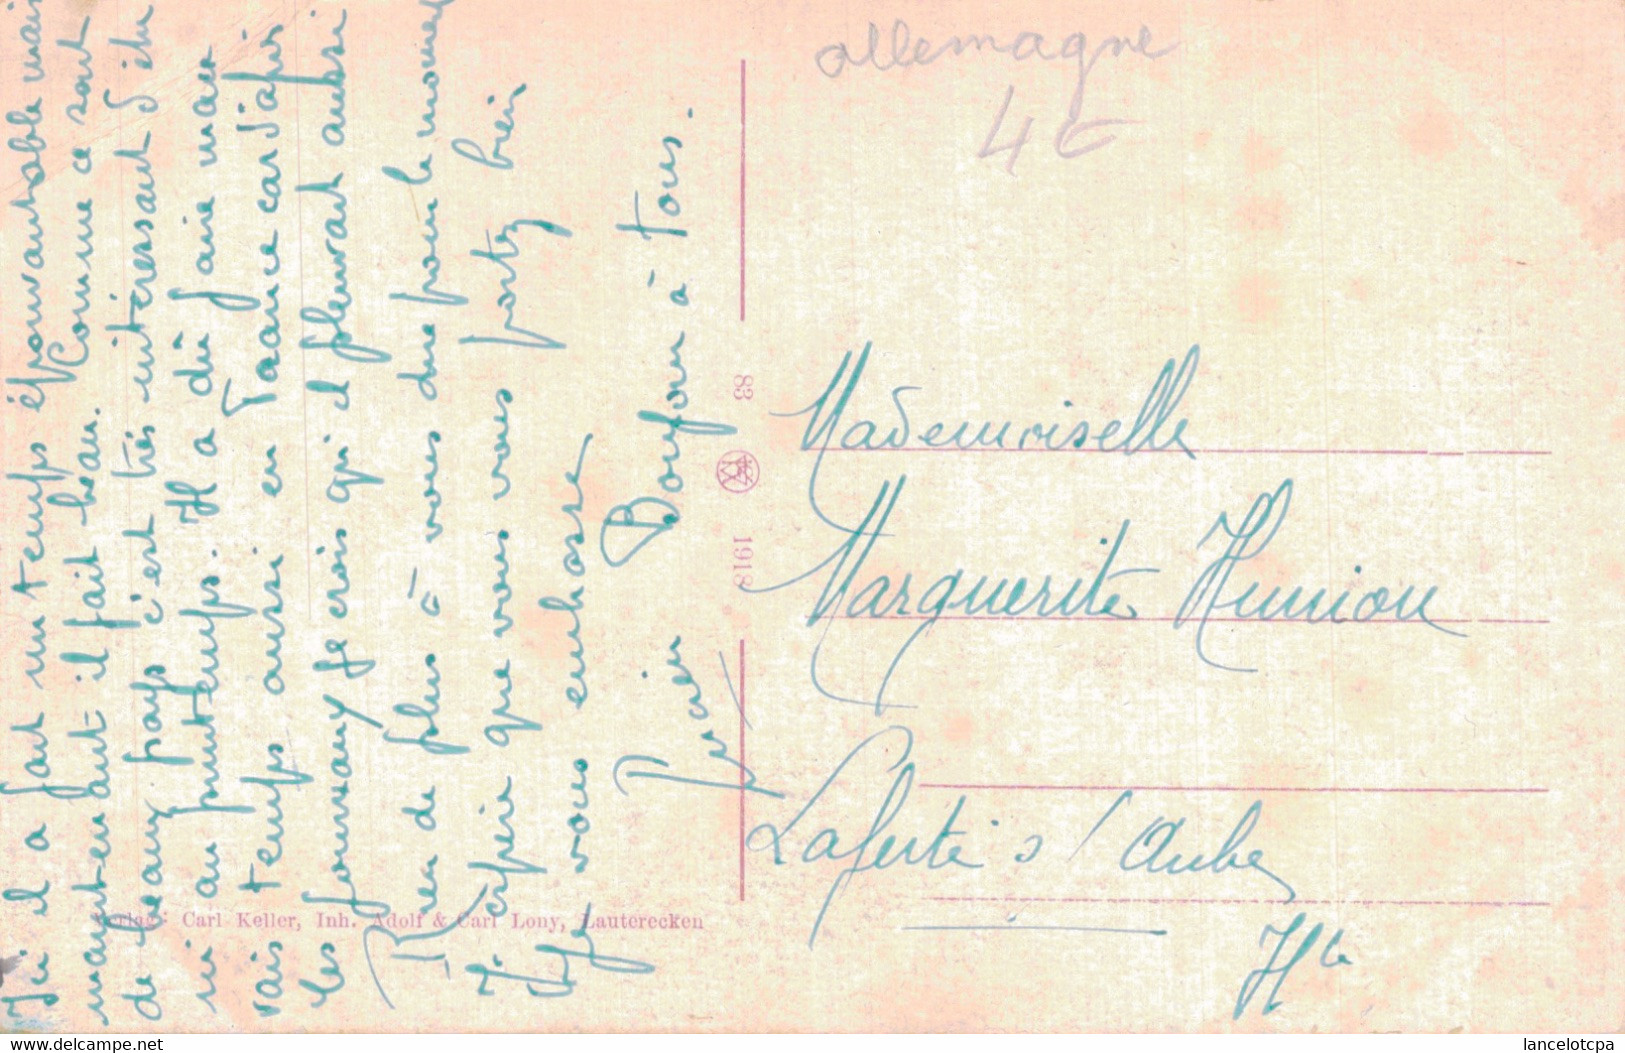 Ici il a fait un temps épouvantable mais
maintenant il fait beau. Comme ce sont
de beaux pays c'est très interessant d'être
ici au printemps. Il a dû faire mau
vais temps aussi en France car d'après
les journaux je crois qu'il pleuvrait aussi
Rien de plus à vous dire pour le moment
J'espère que vous vous portez bien
Je vous embrasse
Bonjour à tous.
allemagne
4€
83
1918
Mademoiselle
Marguerite Hunion
Laferté s/ Aube
Hte
Verlag: Carl Keller, Inh. Adolf & Carl Lony, Lauterecken
www.delcampe.net
lancelotcpa